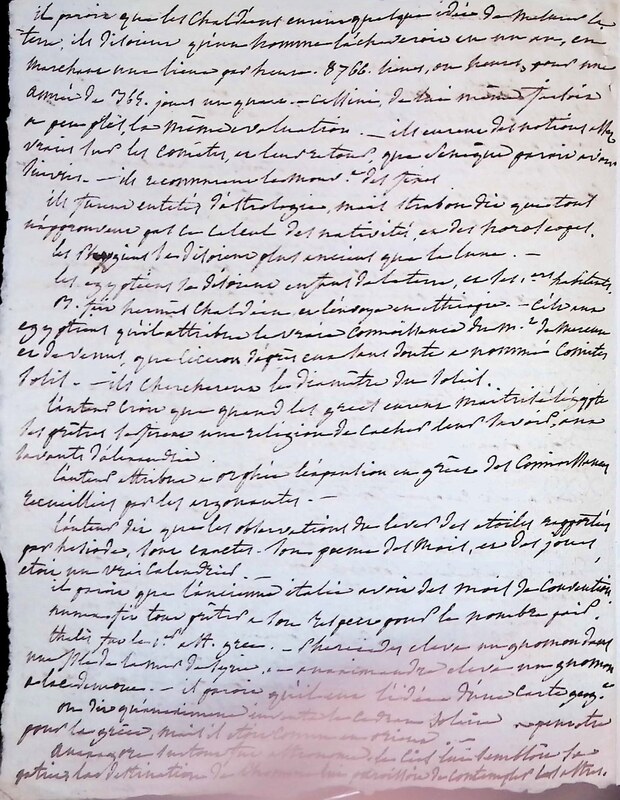 il paroit que les Chaldéens eurent quelque idée de mesurer la
terre, ils disoient qu'un homme l'acheveroit en un an, en
marchant une lieue par heure. 8766. lieues, ou heures, pour une
année de 365. jours un quart. — Cassini, de lui même faisoit
a peu près la même évaluation. — ils eurent des notions assez
vraies sur les Comètes, et leur retour, que Seneque paroit avoir
suivies. — ils reconnurent le mouv.t des fixes
ils furent entêtés d'astrologie, mais strabon dit que tous
n'approuvoient pas le calcul des nativités, et des horoscopes.
les Phrygiens se disoient plus anciens que la lune. —
les egyptiens se disoient enfans de la terre, et les 1.ers habitants.
hermès Chaldéen, et l'envoye en ethiopie. — C'est aux
egyptiens qu'il attribue la vraie Connoissance du m.t de Mercure
et de venus, que Ciceron d'après eux sans doute a nommé Comites
Solis. — ils chercherent le diamètre du Soleil.
l'auteur croit que quand les grecs eurent maitrisé l'égypte
les prêtres se firent une religion de cacher leur savoir, aux
savants d'alexandrie.
l'auteur attribue a orphée l'expansion en grèce des Connoissances
recueillies par les argonautes. —
l'auteur dit que les observations du lever des etoiles rapportées
par hesiode, sont exactes. Son poeme des Mois, et des jours,
etoit un vrai Calendrier. —
il paroit que l'ancienne italie avoit des mois de Convention
numa fit tout prêter a son respect pour le nombre pair.
thalès fut le 1.er ast. grec. — Pherecides eleva un gnomon dans
une isle de la mer de Syrie. — anaximandre eleva un gnomon
a lacedemone. — il paroit qu'il eut l'idée d'une Carte geog.e
on dit qu'anaximene inventa le cadran Solaire peut etre
pour la grèce, mais il etoit Connu en orient. —
anaxagore surtout fut astronome, le Ciel lui sembloit sa
patrie, la destination de l'homme lui paroissoit de contempler les astres.